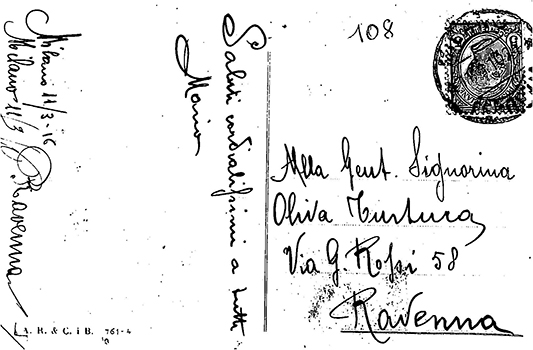 Milano 11/3-16
Milano 11/3
Ravenna
Saluti cordialissimi a tutti
Mario
108
Alla Gent. Signorina
Oliva Turtura
Via G. Rossi 58
Ravenna
A. R. & C. i B. 761-4